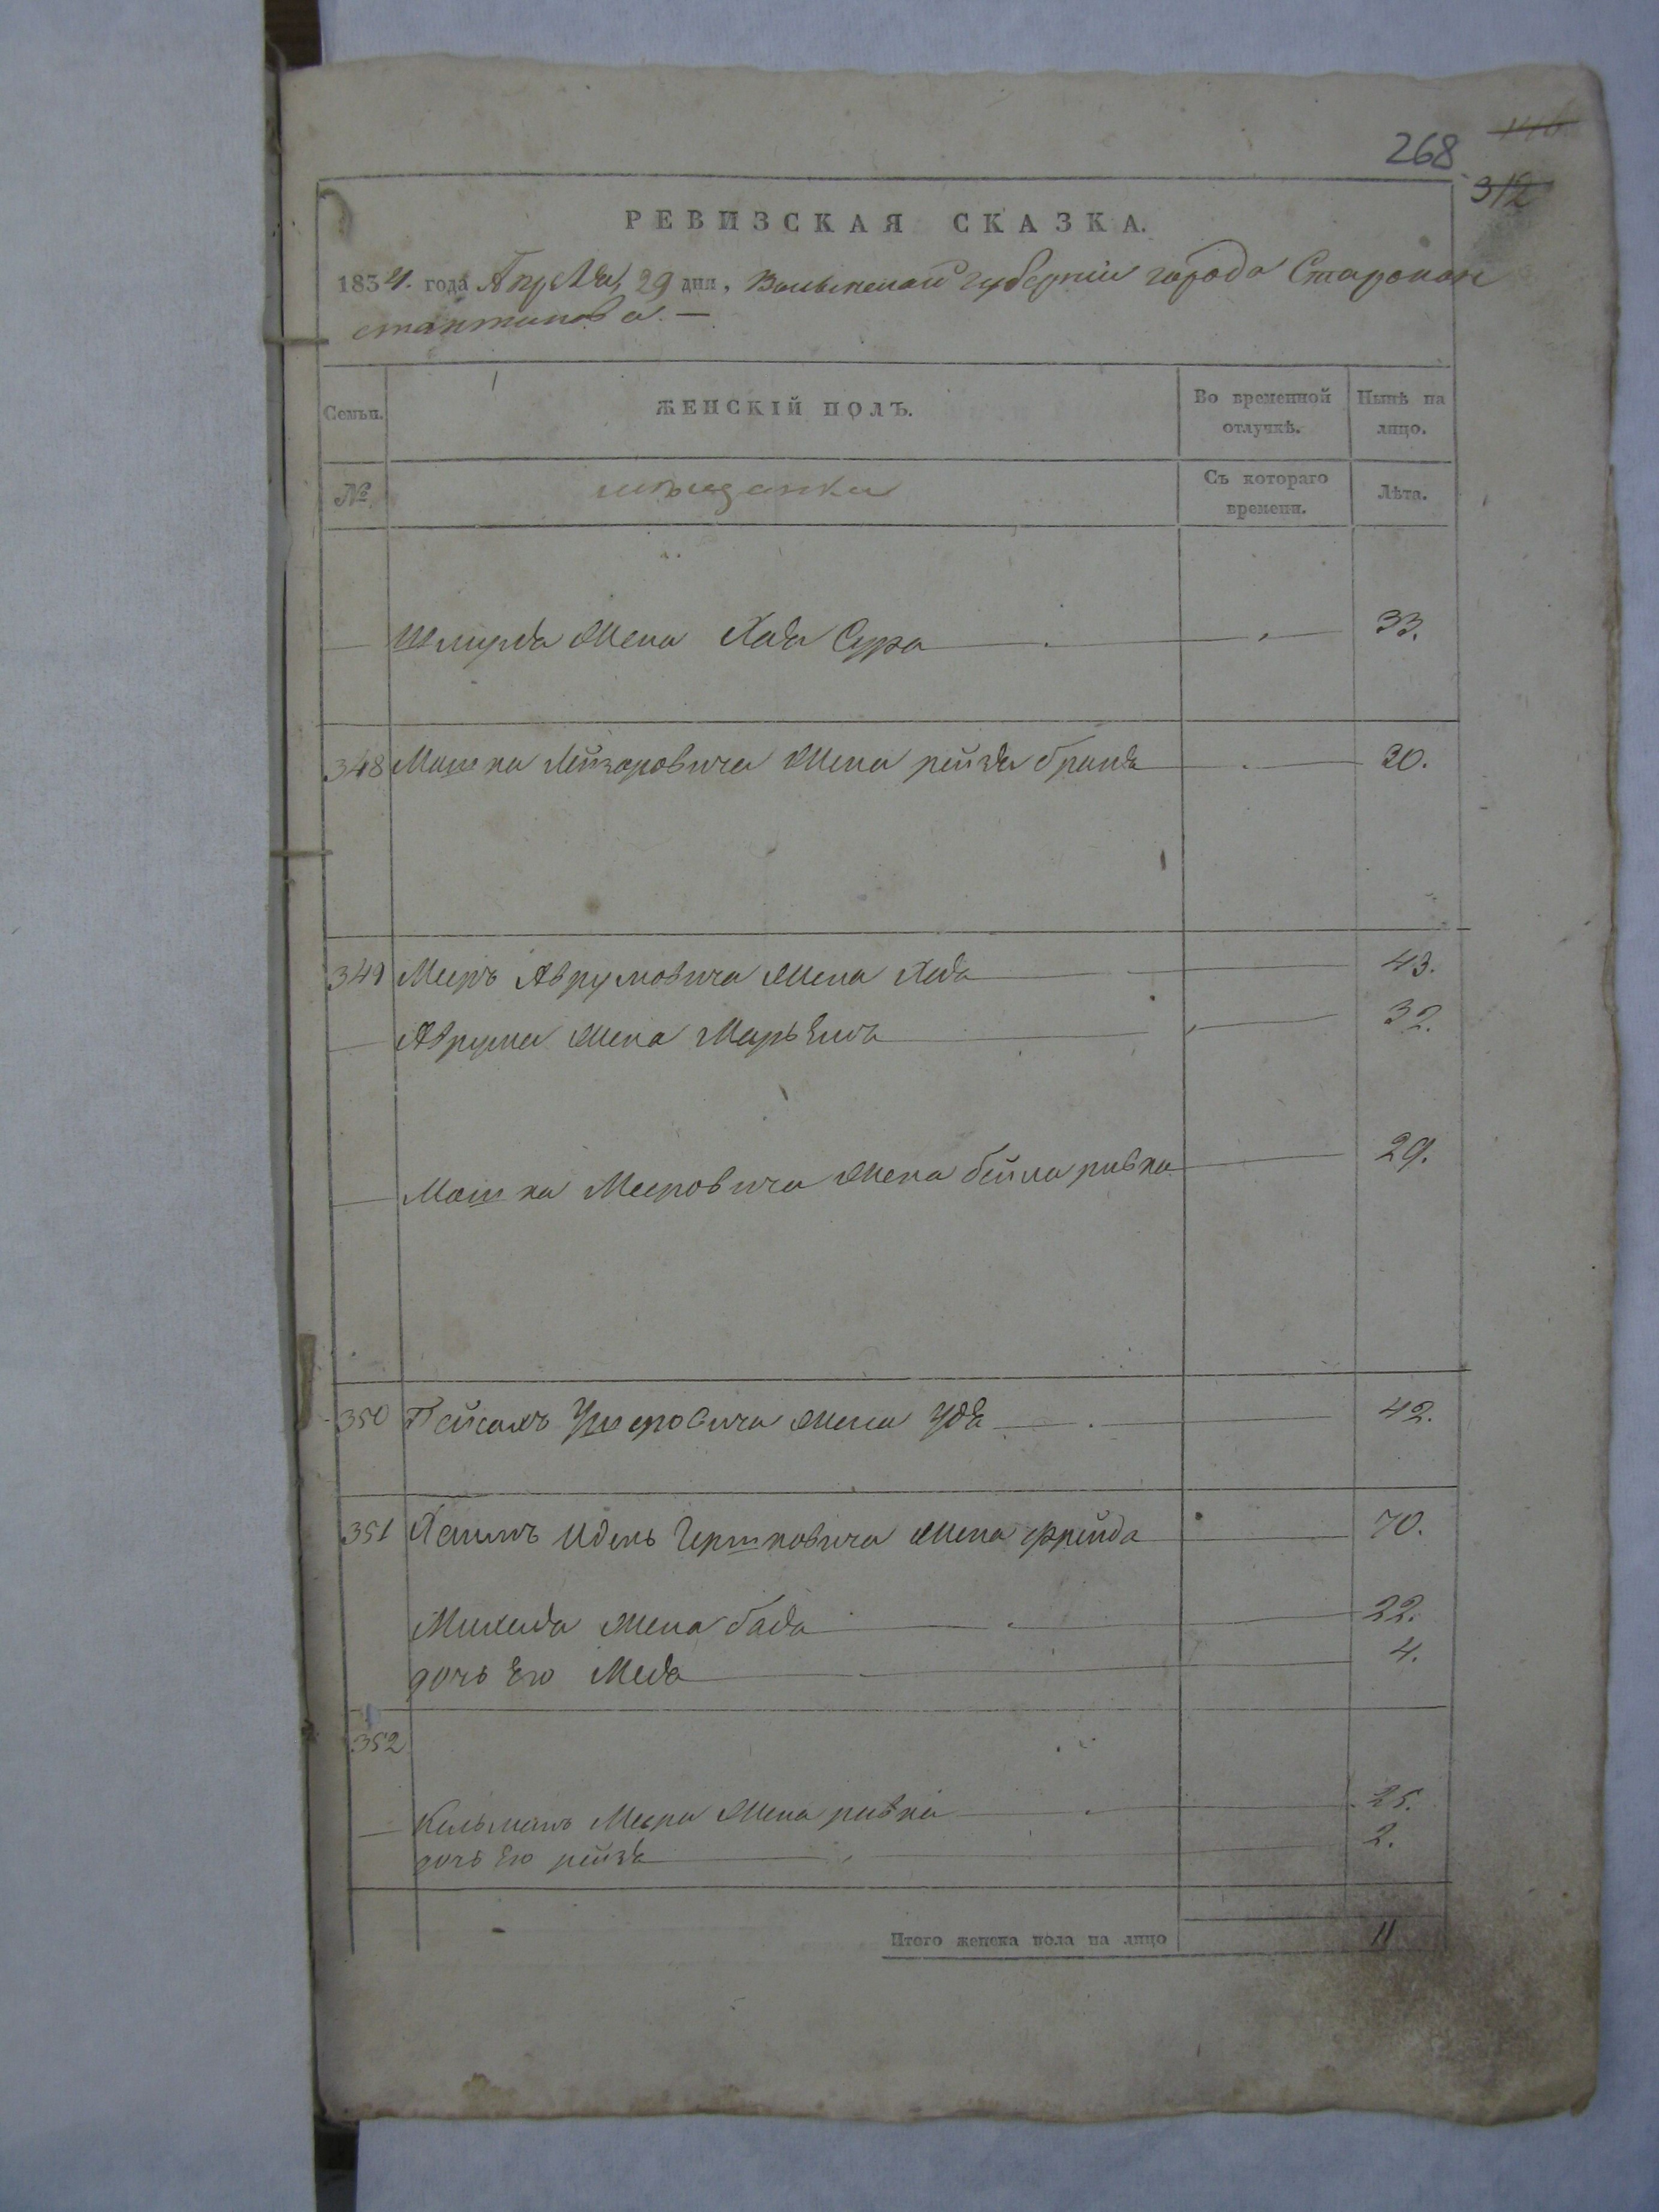 268
146
312
РЕВИЗСКАЯ СКАЗКА.
1834. года Апреля 29 дня, Волынской губерніи города Старокон
стантинова. —
Семьи. ЖЕНСКІЙ ПОЛЪ. Во временной отлучкѣ. Нынѣ на лицо.
№ мѣщанки Съ котораго времени. Лѣта.
Жена Хая Сура 33.
348 Мошка Лейзоровича Жена рейзя браня 20.
349 Мееръ Аврумовича Жена Хая 43.
Аврума Жена Марьямъ 32.
Мошка Мееровича Жена бейла ривка 29.
350 Пейсахъ Ушеровича Жена Удя 42.
351 Хаимъ Идель Гершковича Жена фрейда 70.
Михеля Жена бася 22.
дочь Его 4.
352
Кельманъ Меера Жена ривка 25.
дочь Его рейзя 2.
Итого женска пола на лицо 11